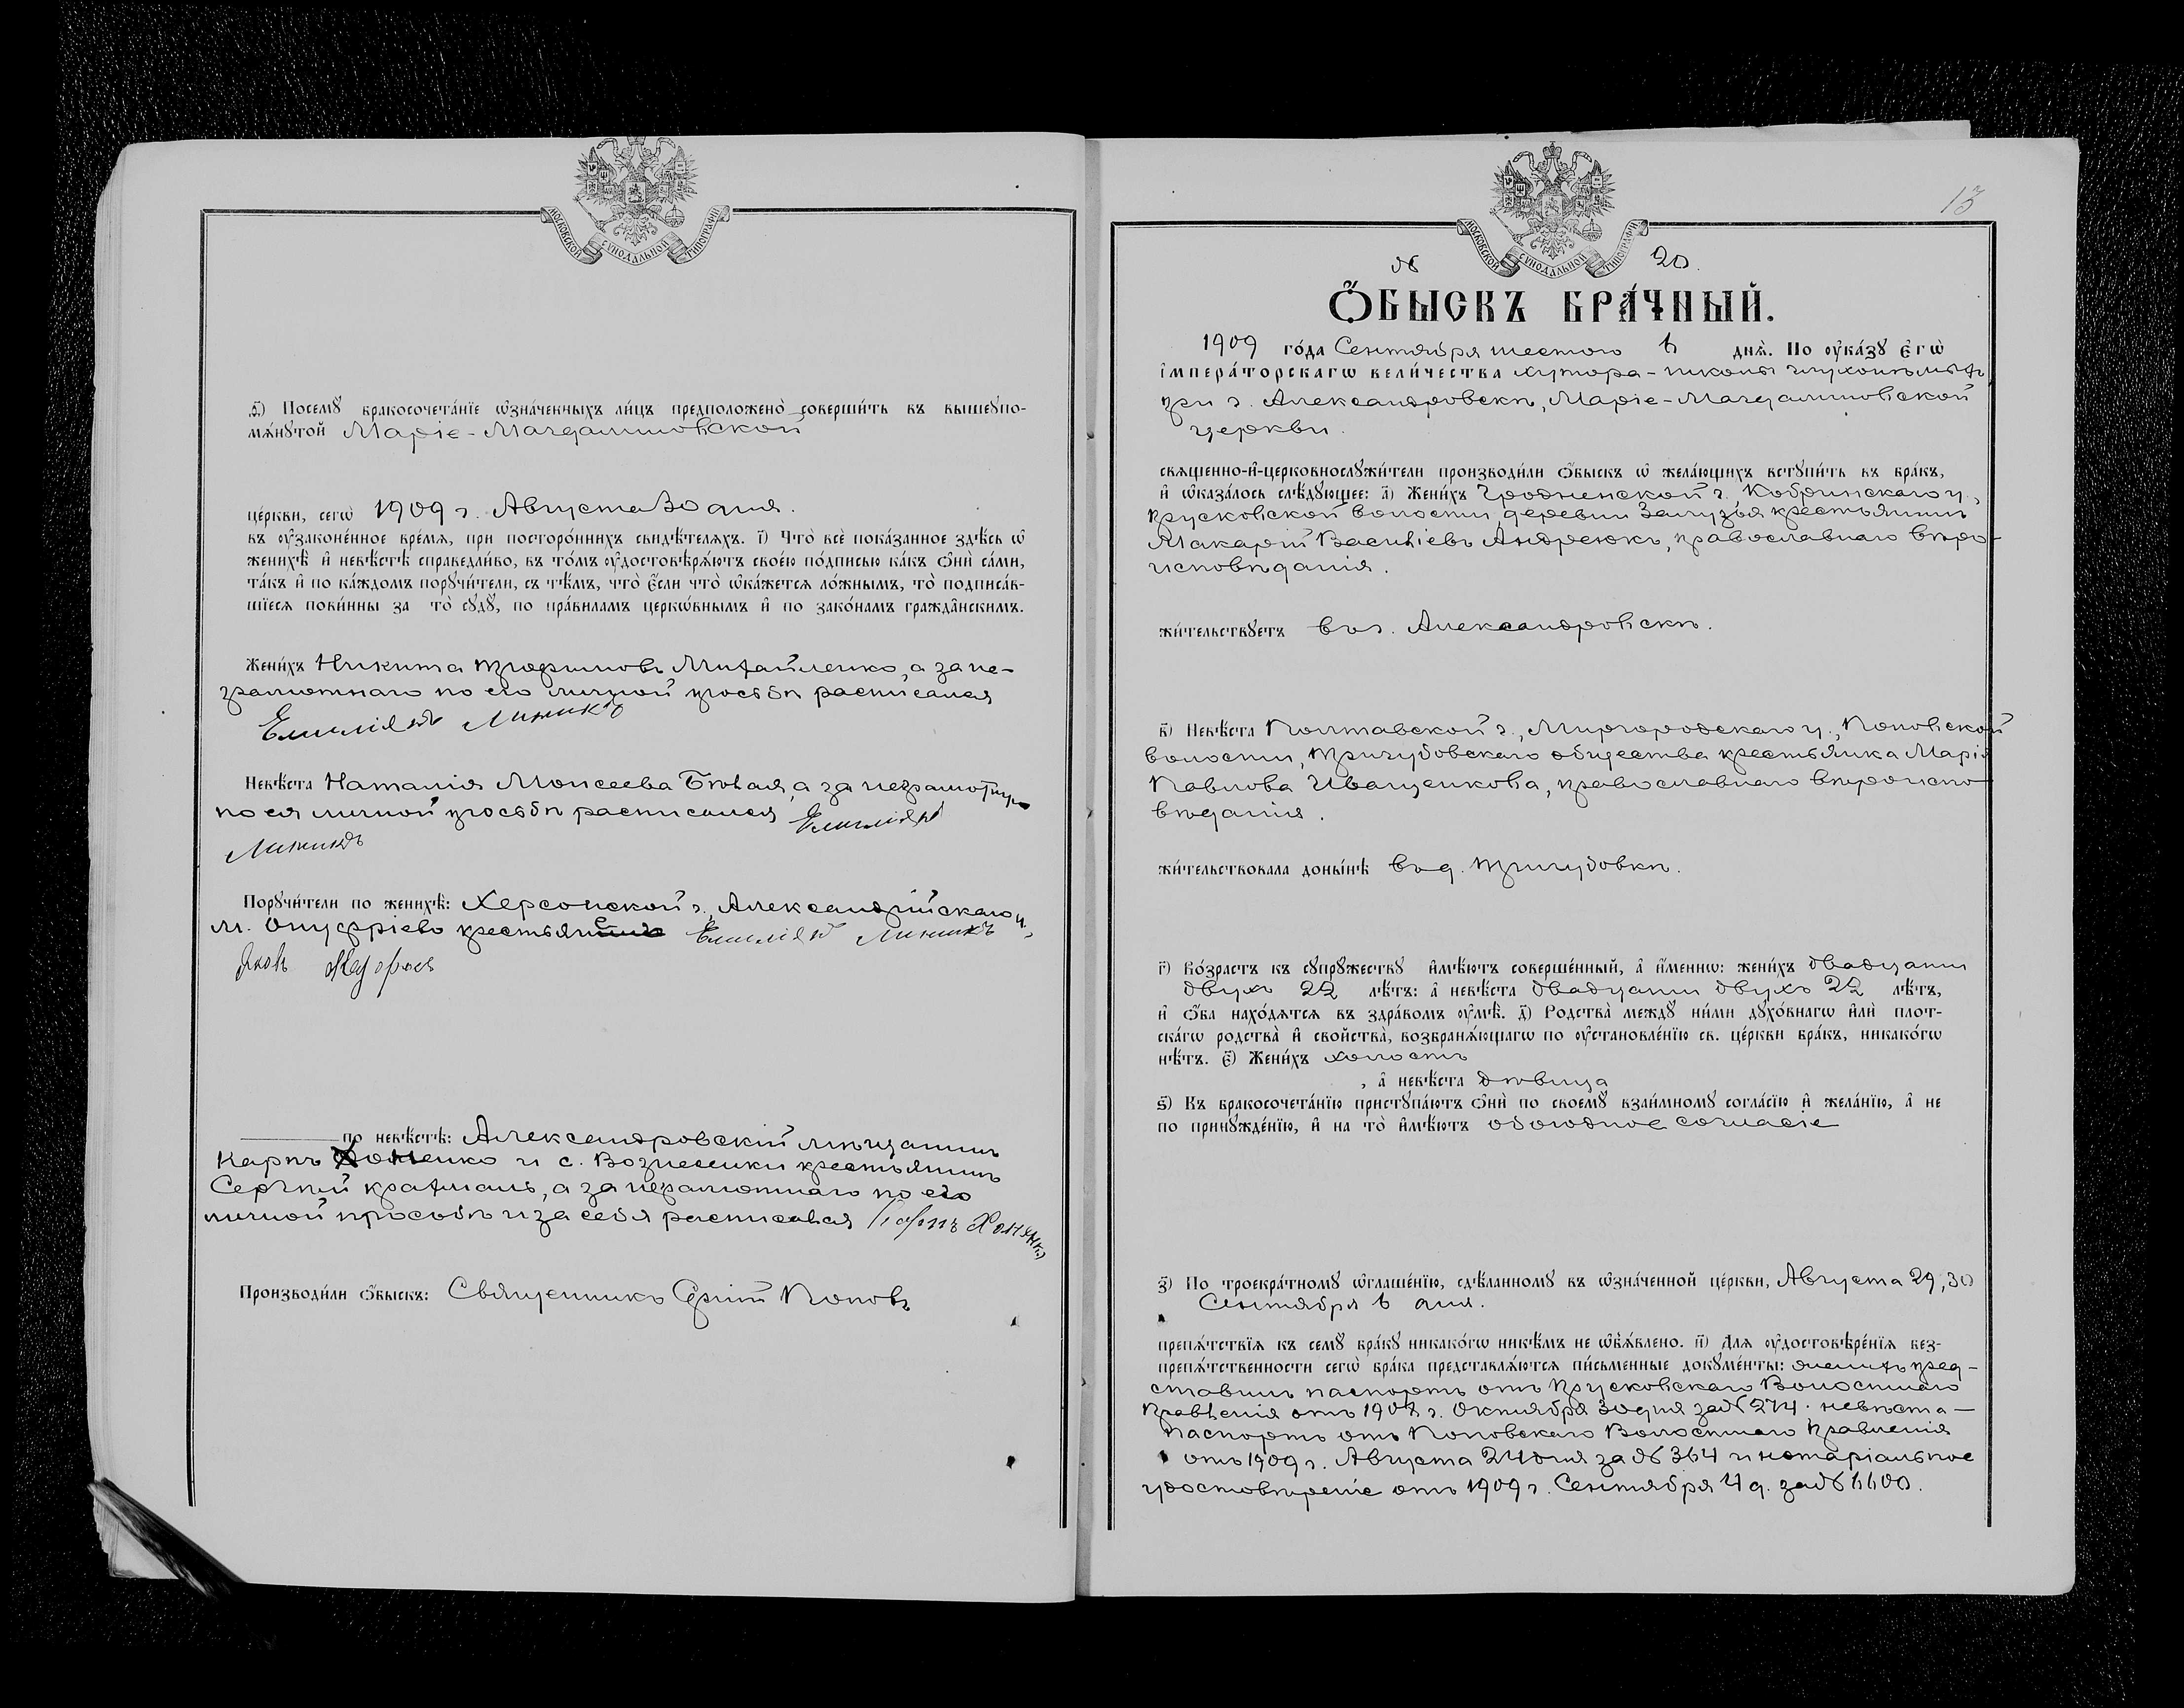 МОСКОВСКОЙ СѴНОДАЛЬНОЙ ТИПОГРАФІИ
ѳ҃) Посемꙋ̀ бракосочета́нїе ѡ҆зна́ченныхъ ли́цъ предположено̀ соверши́ть въ вышеꙋпо-
мѧ́нꙋтой Маріе-Магдалиновской
це́ркви, сегѡ̀ 1909 г. Августа 30 дня.
въ ᲂу҆законе́нное вре́мѧ, при посторо́ннихъ свидѣ́телѧхъ. і҃) Что̀ всѐ пока́занное здѣ́сь ѡ҆
женихѣ̀ и҆ невѣ́стѣ справедли́во, въ то́мъ ᲂу҆достовѣрѧ́ютъ свое́ю по́дписью ка́къ ѻ҆нѝ са́ми,
та́къ и҆ по ка́ждомъ порꙋчи́тели, съ тѣ́мъ, что̀ є҆́сли что̀ ѡ҆ка́жетсѧ ло́жнымъ, то̀ подписа́в-
шїесѧ пови́нны за то̀ сꙋдꙋ̀, по пра́виламъ церкѡ́внымъ и҆ по зако́намъ гражда́нскимъ.
Жени́хъ Никита Трофимовъ Михайленко, а за не-
грамотнаго по его личной просьбѣ расписался
Емиліянъ Линикъ
Невѣ́ста Наталія Моисеева Бѣлая, а за неграмотную
по ея личной просьбѣ расписался Емиліянъ
Линикъ
Порꙋчи́тели по женихѣ̀: Херсонской г., Александрійскаго у.,
м. Онуфріево крестьяне Емиліянъ Линикъ
Яковъ
по невѣ́стѣ: Александровскій мѣщанинъ
Карпъ Хоменко и с. Вознесенки крестьянинъ
Сергѣй Крахмаль, а за неграмотнаго по его
личной просьбѣ и за себя расписался Карпъ Хоменко
Производи́ли ѻ҆́быскъ: Священникъ Попов
13
МОСКОВСКОЙ СѴНОДАЛЬНОЙ ТИПОГРАФІИ
№ 20.
Ѻ҆́БЫСКЪ БРА́ЧНЫЙ.
1909 го́да Сентября шестого 6 днѧ̀. По ᲂу҆ка́зꙋ є҆гѡ̀
і҆мпера́торскагѡ вели́чества хутора-школы глухонѣмыхъ
при г. Александровскѣ, Маріе-Магдалиновской
церкви.
свѧщенно-и҆-церковнослꙋжи́тели производи́ли ѻ҆́быскъ ѡ҆ жела́ющихъ встꙋпи́ть въ бра́къ,
и҆ ѡ҆каза́лось слѣ́дꙋющее: а҃) Жени́хъ Гродненской г. Кобринскаго у.,
Прусковской волости, деревни Залузья крестьянинъ
Макарій Васильевъ Андреюкъ, православнаго вѣро-
исповѣданія.
жи́тельствꙋетъ въ г. Александровскѣ.
в҃) Невѣ́ста Полтавской г., Миргородскаго у., Поповской
волости, Тригубовскаго общества крестьянка Марія
Павлова Иващенкова, православнаго вѣроиспо-
вѣданія.
жи́тельствовала доны́нѣ въ д. Тригубовкѣ.
г҃) Во́зрастъ къ сꙋпрꙋ́жествꙋ и҆мѣ́ютъ соверше́нный, а҆ и҆́меннѡ: жени́хъ двадцати
двухъ 22 лѣ́тъ: а҆ невѣ́ста двадцати двухъ 22 лѣ́тъ,
и҆ ѻ҆́ба нахо́дѧтсѧ въ здра́вомъ ᲂу҆мѣ̀. д҃) Родства̀ междꙋ̀ ни́ми дꙋхо́внагѡ и҆лѝ плот-
ска́гѡ родства̀ и҆ свойства̀, возбранѧ́ющагѡ по ᲂу҆становле́нїю св. це́ркви бра́къ, никако́гѡ
нѣ́тъ. є҃) Жени́хъ холостъ
, а҆ невѣ́ста дѣвица
ѕ҃) Къ бракосочета́нїю пристꙋпа́ютъ ѻ҆нѝ по своемꙋ̀ взаи́мномꙋ согла́сїю и҆ жела́нїю, а҆ не
по принꙋжде́нїю, и҆ на то̀ и҆мѣ́ютъ обоюдное согласіе
з҃) По троекра́тномꙋ ѡ҆глаше́нїю, сдѣ́ланномꙋ въ ѡ҆зна́ченной це́ркви, Августа 29, 30
Сентября 6 дня.
препѧ́тствїѧ къ семꙋ̀ бра́кꙋ никако́гѡ никѣ́мъ не ѡ҆б̾ѧ́влено. и҃) Длѧ ᲂу҆достовѣре́нїѧ без-
препѧ́тственности сегѡ̀ бра́ка представлѧ́ютсѧ пи́сьменные докꙋме́нты: женихъ пред-
ставилъ паспортъ отъ Прусковскаго Волостнаго
Правленія отъ 1908 г. Октября 30 дня за № 274. невѣста-
паспортъ отъ Поповскаго Волостнаго Правленія
отъ 1909 г. Августа 24 дня за № 364 и нотаріальное
удостовѣреніе отъ 1909 г. Сентября 4 д. за № 6600.